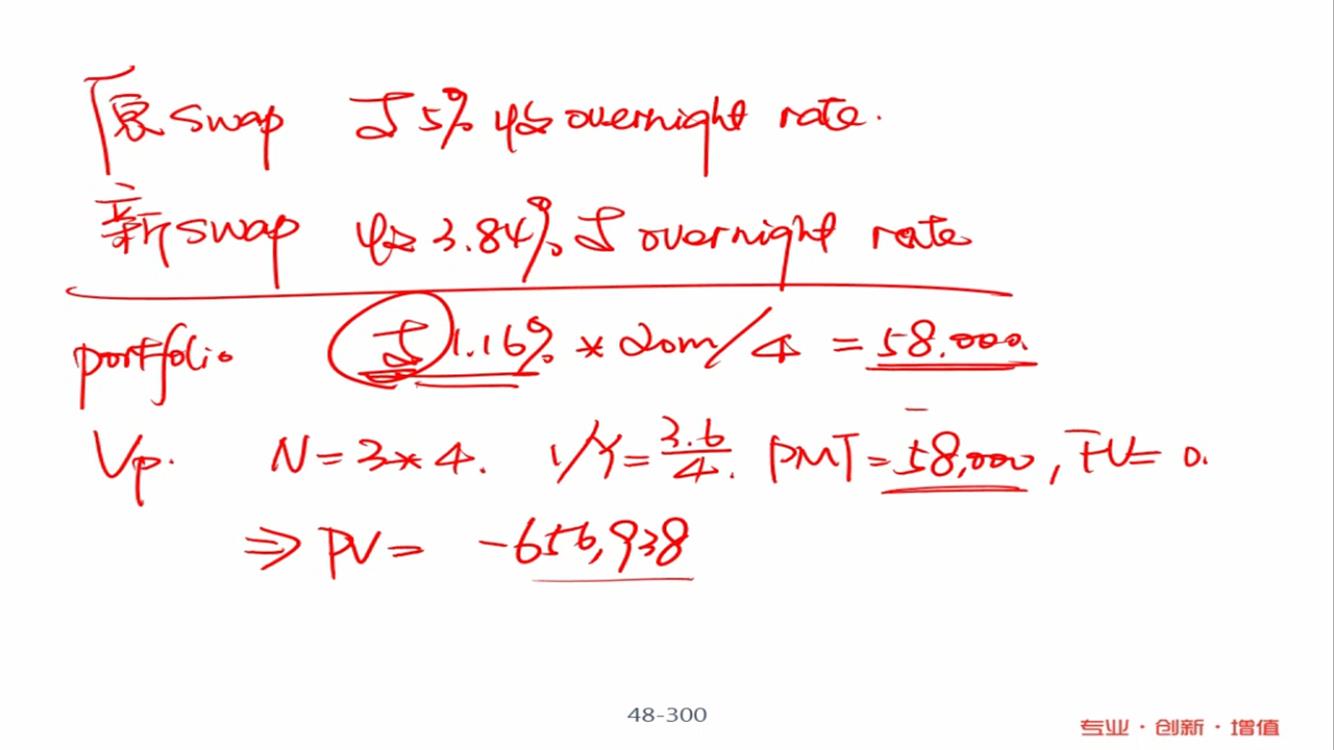 原 swap 支 5% 收 overnight rate.
新 swap 收 3.84% 支 overnight rate
portfolio 支 1.16% * 20m/4 = 58,000.
Vp. N=3*4. I/Y=3.6/4. PMT=-58,000, FV=0.
⇒ PV= -656,938
48-300
专业·创新·增值